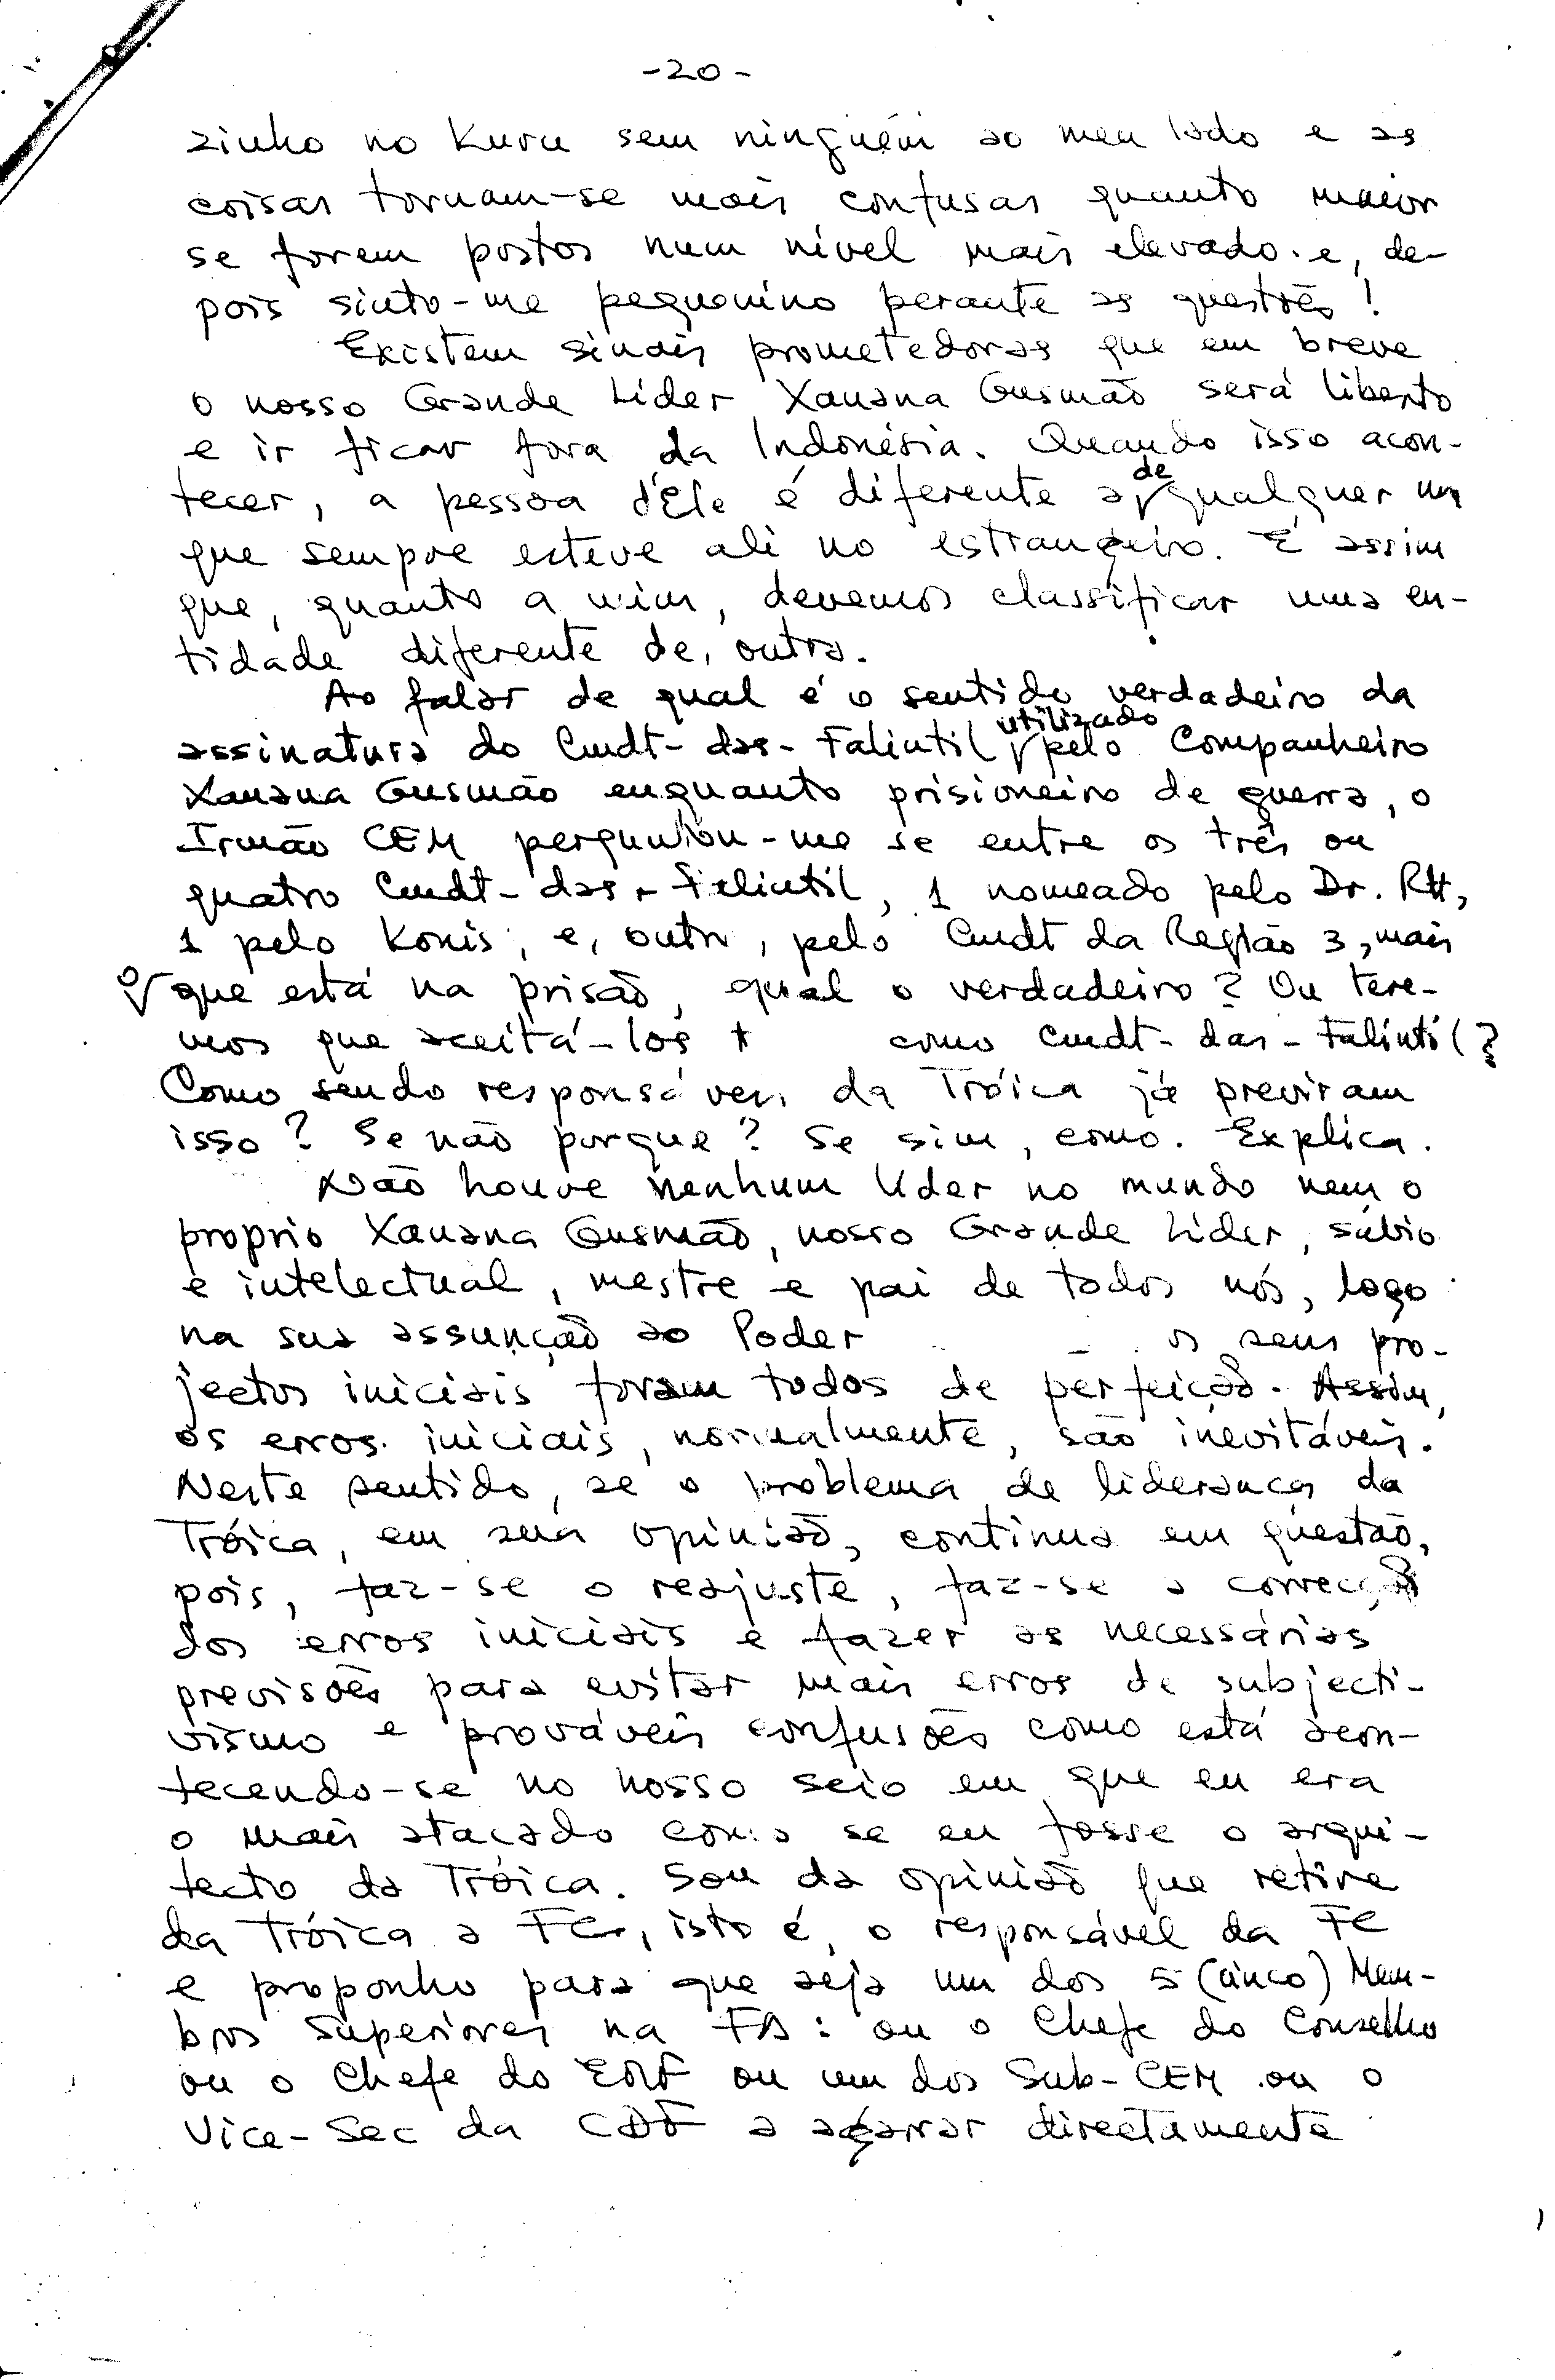 -20-
zinho no Kuru sem ninguém ao meu lado e as
coisas tornam-se mais confusas quanto maior
se forem postos num nível mais elevado e, de-
pois sinto-me pequenino perante as questões!
Existem sinais prometedoras que em breve
o nosso Grande Líder Xanana Gusmão será liberto
e ir ficar fora da Indonésia. Quando isso acon-
tecer, a pessoa d'Ele é diferente a de qualquer um
que sempre esteve ali no estrangeiro. É assim
que, quanto a mim, devemos classificar uma en-
tidade diferente de outra.
Ao falar de qual é o sentido verdadeiro da
assinatura do Cmdt-das-Falintil utilizado pelo Companheiro
Xanana Gusmão enquanto prisioneiro de guerra, o
Irmão CEM perguntou-me se entre os três ou
quatro Cmdt-das-Falintil, 1 nomeado pelo Dr. RH,
1 pelo Konis, e, outro, pelo Cmdt da Região 3, mais
o que está na prisão, qual o verdadeiro? Ou tere-
mos que aceitá-los como Cmdt-das-Falintil?
Como sendo responsáveis da Tróica já previram
isso? Se não porque? Se sim, como. Explica.
Não houve nenhum líder no mundo nem o
proprio Xanana Gusmão, nosso Grande Líder, sábio
e intelectual, mestre e pai de todos nós, logo
na sua assunção ao Poder os seus pro-
jectos iniciais foram todos de perfeição. Assim,
os erros iniciais, normalmente, são inevitáveis.
Neste sentido, se o problema de liderança da
Tróica, em sua opinião, continua em questão,
pois, faz-se o reajuste, faz-se a correcção
dos erros iniciais e fazer as necessárias
previsões para evitar mais erros de subjecti-
vismo e prováveis confusões como está acon-
tecendo-se no nosso seio em que eu era
o mais atacado como se eu fosse o arqui-
tecto da Tróica. Sou da opinião que retire
da Tróica a FC, isto é, o responsável da FC
e proponho para que seja um dos 5 (cinco) Mem-
bros Superiores na FA: ou o Chefe do Conselho
ou o Chefe do EMF ou um dos Sub-CEM ou o
Vice-Sec da CDF a agarrar directamente